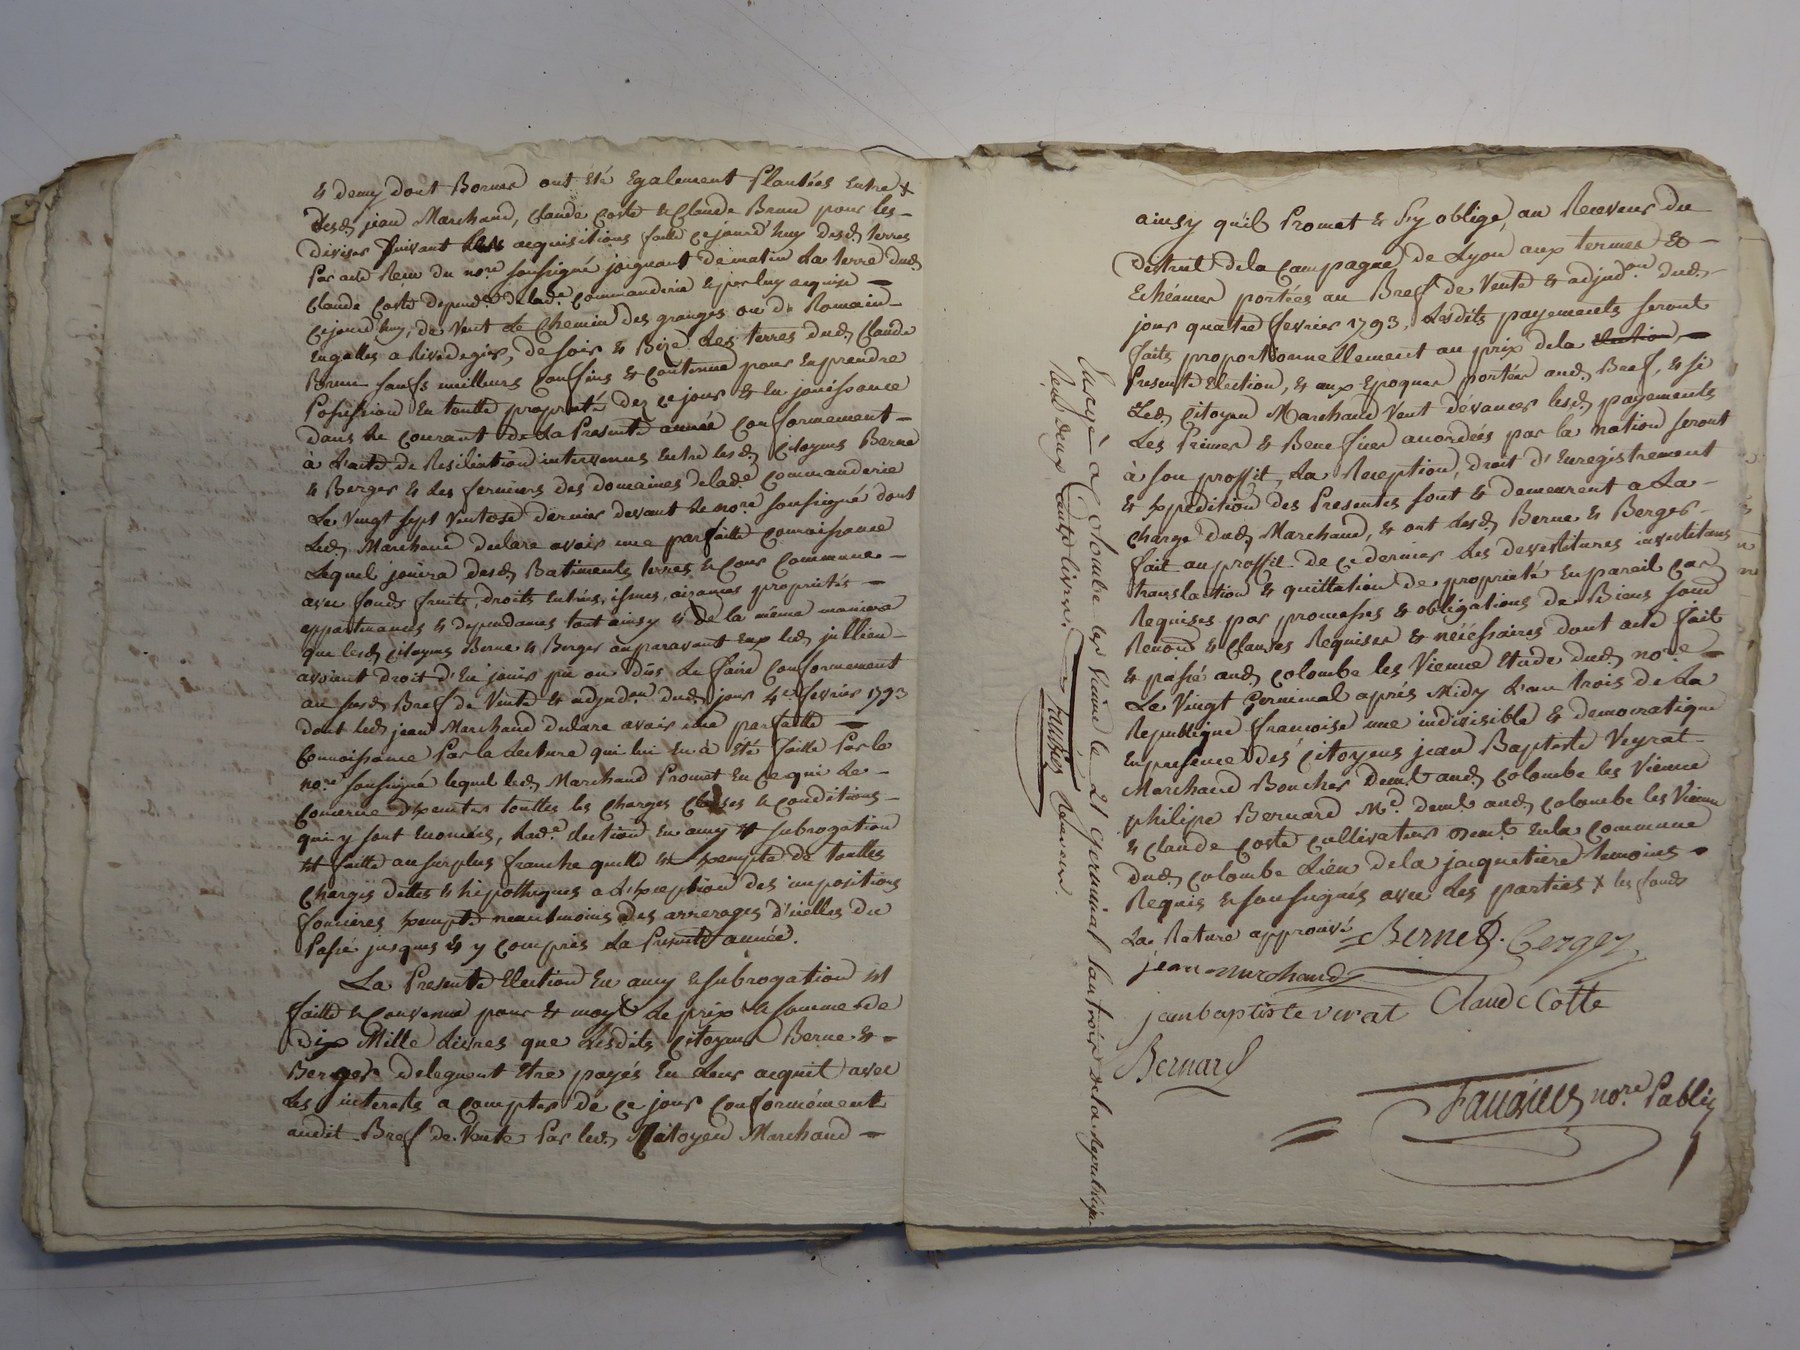 & demy dont Bornes ont été Egalement Plantées Entre x
Lesd. jean Marchand, Claude Coste & Claude Brun pour les
diviser suivant acquisitions faitte cejourd'huy desd. terres
Par acte Reçu du no.re soussigné joignant de matin La terre dud.
Claude Coste depend.te de lad.e Commanderie & par luy acquise
Cejourd'huy, de Vent Le Chemin des granges ou de Romain-
Engalles a Rivedegier, de soir & Bize Les terres dud. Claude
Brun saufs meilleurs Confins & Contenue pour En prendre
Possession En toutte propriété dez ce jour & En jouissance
dans Le Courant de La Presente année Conformement
à L'acte de Resiliation intervenue Entre lesd. Citoyens Berne
& Berger & Les fermiers des domaines de lad.e Commanderie
Le Vingt sept Ventose dernier devant Le no.re soussigné dont
Led. Marchand declare avoir une parfaitte Connoissance
Lequel jouira desd. Batiments, terres & Cour Commune
avec fonds fruits, droits Entrées, issues, aizances proprietés
appartenances & dependances tout ainsy & de la même maniere
que lesd. Citoyens Berne & Berger auparavant Eux led. jullien
avoient droit d'En jouir pu ou dûs Le faire Conformement
au susd. Bref de Vente & adjud.on dud. jour 4e fevrier 1793
dont led. jean Marchand declare avoir une parfaitte
Connoissance Par la Lecture qui lui En a été faitte Par le
no.re soussigné lequel led. Marchand Promet En ce qui Le
Concerne d'Executer touttes les Charges Clauses & Conditions
qui y sont Enoncées, Lad.e Election En amy & subrogation
Est faitte au surplus franche quitte & Exempte de touttes
Charges dettes & hipotheques a L'Exception des impositions
foncieres Exempte neantmoins des arrerages d'icelles du
Passé jusques & y Compris La Presente année.
La Presente Election En amy & subrogation Est
faitte & Convenue pour & moy.t Le prix & somme de
dix Mille Livres que Lesdits Citoyens Berne &
Berger deleguent Etre payés En Leur acquit avec
Les interets a Compter de Ce jour Conformément
audit Bref de Vente Par led. Citoyen Marchand
ainsy qu'il Promet & s'y oblige, au Receveur du
District de la Campagne de Lyon aux termes &
Echéances portées au Bref de Vente & adjud.on dud.
jour quatre fevrier 1793, Lesdits payements seront
faits proportionnellement au prix de la Election
Presente Election, & aux Epoques portées aud. Bref, & si
Led. Citoyen Marchand Veut dévancer lesd. payements
Les Primes & Benefices accordées par la nation seront
à son proffit, La Reception, droit d'Enregistrement
& Expédition des Presentes sont & demeurent a La
Charge dud. Marchand, & ont Lesd. Berne & Berger
fait au proffit de ce dernier Les devestitures investitures
translaction & quittation de proprieté En pareil Cas
Requises par promesses & obligations de Biens soud
Renon.s & Clauses Requises & nécéssaires dont acte fait
& passé aud. Colombe les Vienne Etude dud. no.re
Le Vingt Germinal aprés Midy L'an trois de La
Republique françoise une indivisible & democratique
En présence des Citoyens jean Baptiste Veyrat
Marchand Boucher Dem.t aud. Colombe les Vienne
philipe Bernard M.d dem.t aud. Colombe les Vienne
& Claude Coste Cultivateur Dem.t En la Commune
dud. Colombe Lieu de la jaquetiere temoins
Requis & soussignés avec Les parties x les fonds
La Rature approuvé
Berne D. Berger
jean marchand
Claude Coste
jean baptiste virat
Bernard
no.re Public
Enregé a Colombe les Vienne le 21 Germinal L'an trois de la Republique
Reçu deux cents livres.